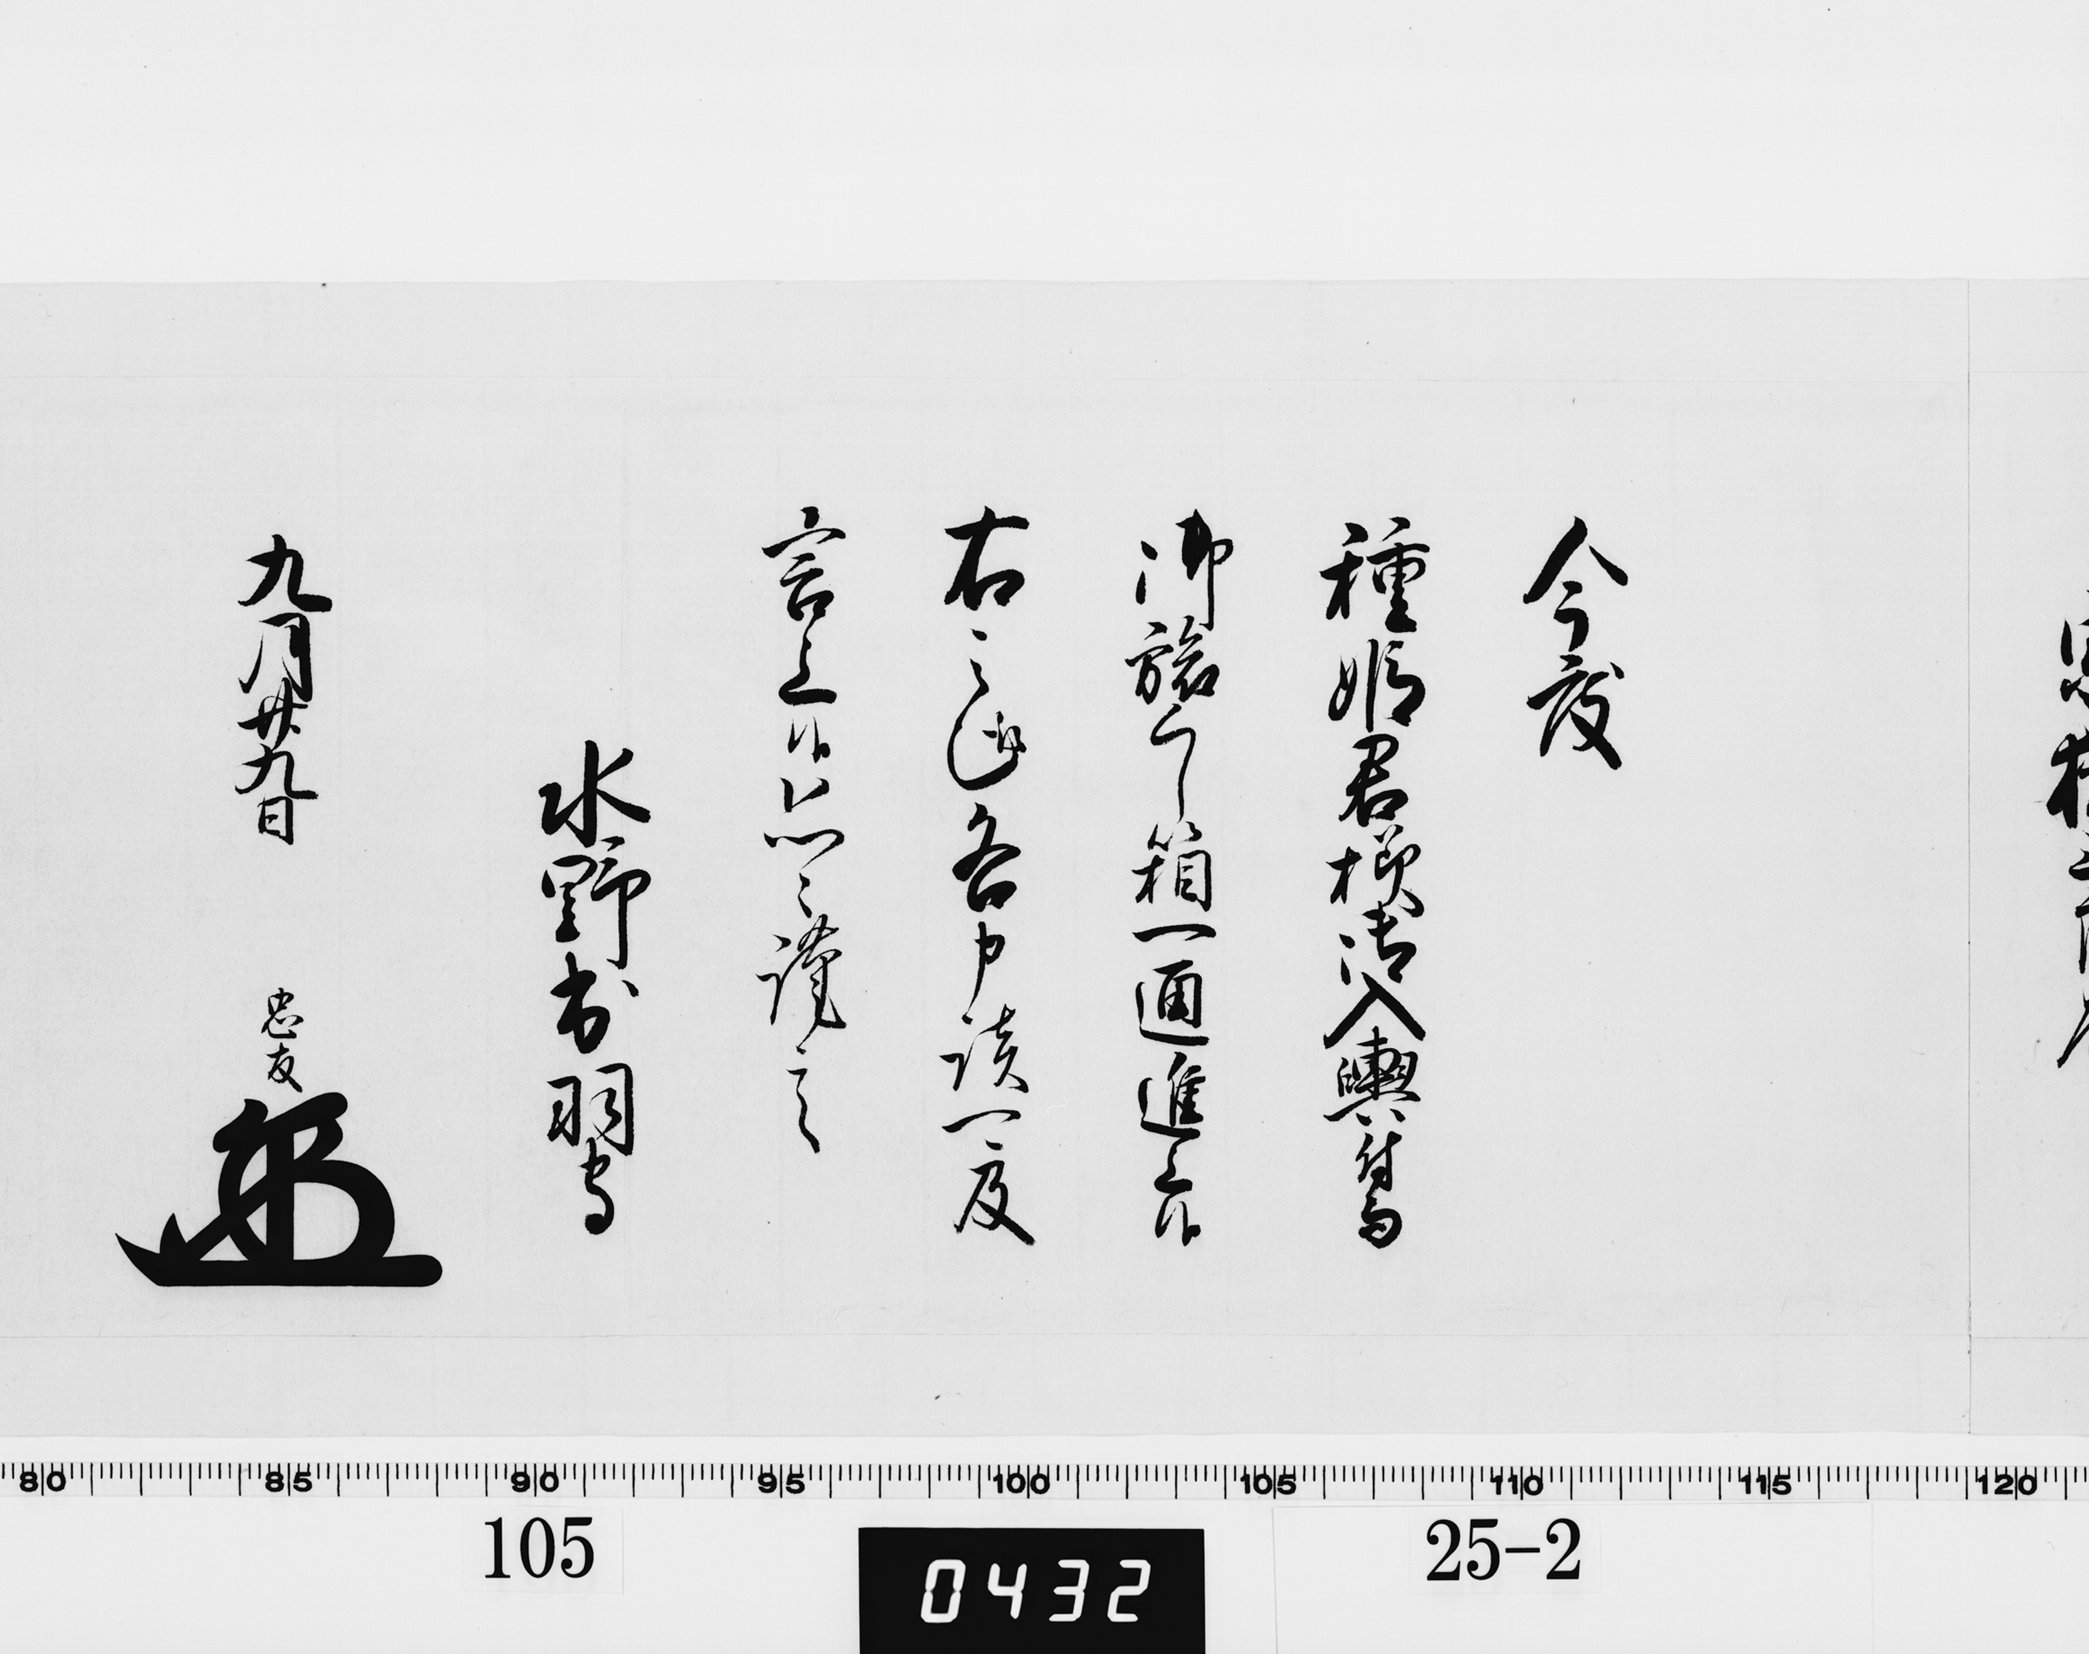 今度
種姫君様御入輿付而
御旅くし箱一通進上候
右之趣各申談可及
言上候恐々謹言
水野出羽守
九月廿九日
忠友
80 85 90 95 100 105 110 115 120
105
0432
25-2